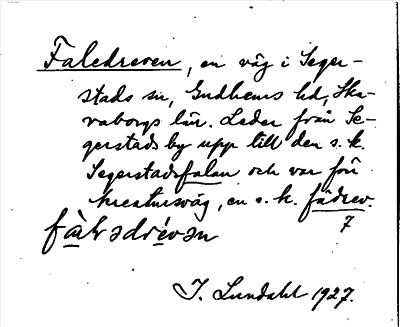 Faledreven, en väg i Seger-
stads sn, Gudhems hd, Ska-
raborgs län. Leder från Se-
gerstads by upp till den s. k.
Segerstadsfalan och var förr
kreatursväg, en s. k. fädrev.
7
I. Lundahl 1927.